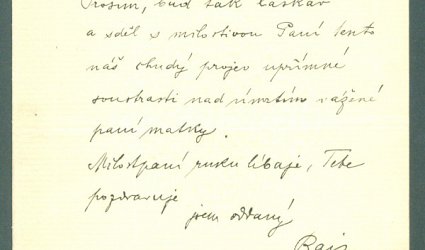 Prosím, buď tak laskav
a sděl s milostivou Paní tento
náš chudý projev upřímné
soustrasti nad úmrtím vážené
paní matky.
Milostpaní ruku líbaje, Tebe
pozdravuje
jsem oddaný
Rais